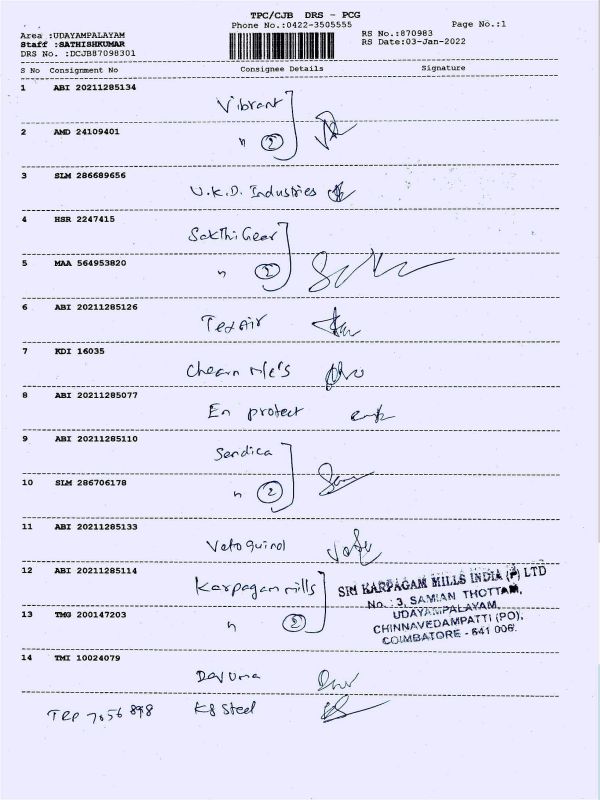 TPC/CJB DRS - PCG
Phone No.:0422-3505555 Page No.:1
Area :UDAYAMPALAYAM RS No.:870983
Staff :SATHISHKUMAR RS Date:03-Jan-2022
DRS No. :DCJB87098301
S No Consignment No Consignee Details Signature
1 ABI 20211285134
Vibrant
2 AMD 24109401
" 2
3 SLM 286689656
U.K.D. Industries
4 HSR 2247415
Sakthi Gear
5 MAA 564953820
" 2
6 ABI 20211285126
Texair
7 KDI 16035
8 ABI 20211285077
En protect
9 ABI 20211285110
Sendica
10 SLM 286706178
" 2
11 ABI 20211285133
Vetoquinol
12 ABI 20211285114
Karpagam mills
13 TMG 200147203
" 2
SRI KARPAGAM MILLS INDIA (P) LTD
No. : 3, SAMIAN THOTTAM,
UDAYAMPALAYAM,
CHINNAVEDAMPATTI (PO),
COIMBATORE - 641 006.
14 TMI 10024079
TRP 7856 898 K8 Steel